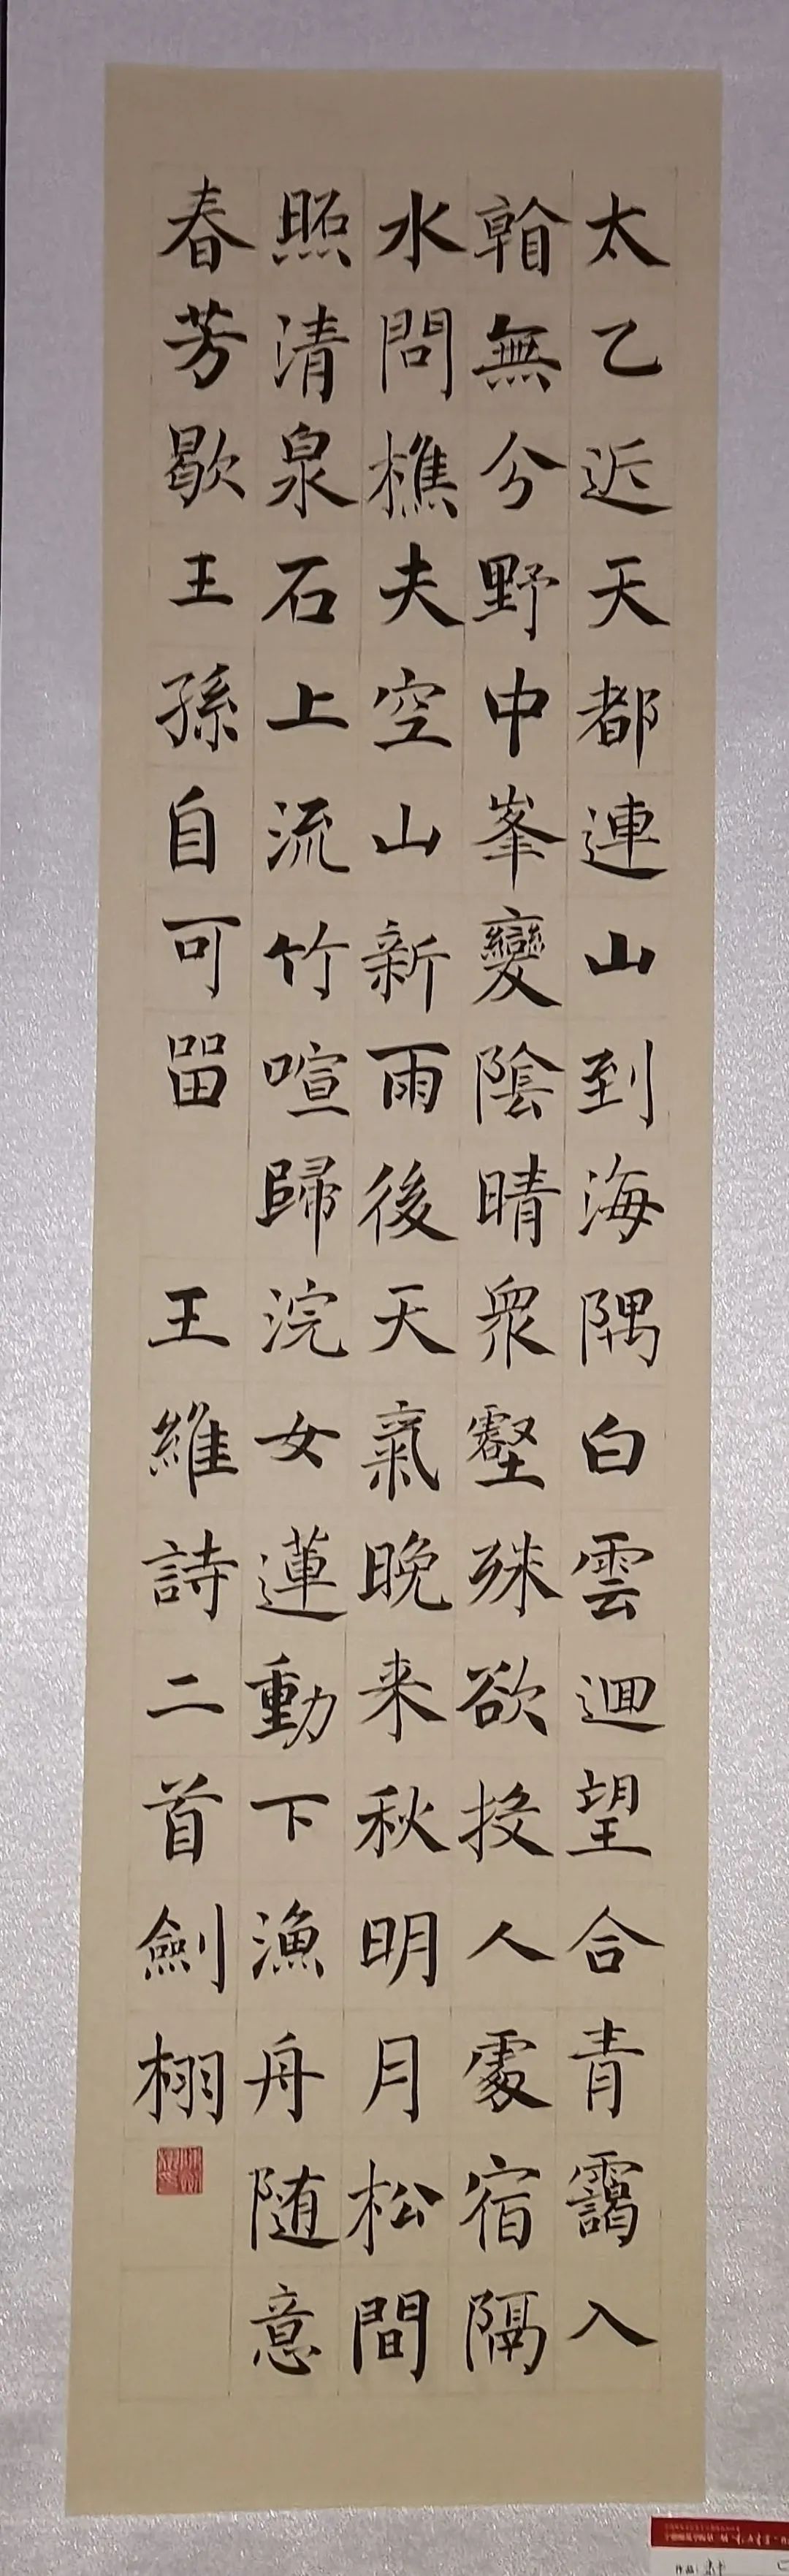 太乙近天都連山到海隅白雲迴望合青靄入
㸔無分野中峯變陰晴衆壑殊欲投人處宿隔
水問樵夫空山新雨後天氣晚来秋明月松間
照清泉石上流竹喧歸浣女蓮動下漁舟随意
春芳歇王孫自可留
王維詩二首劍栩